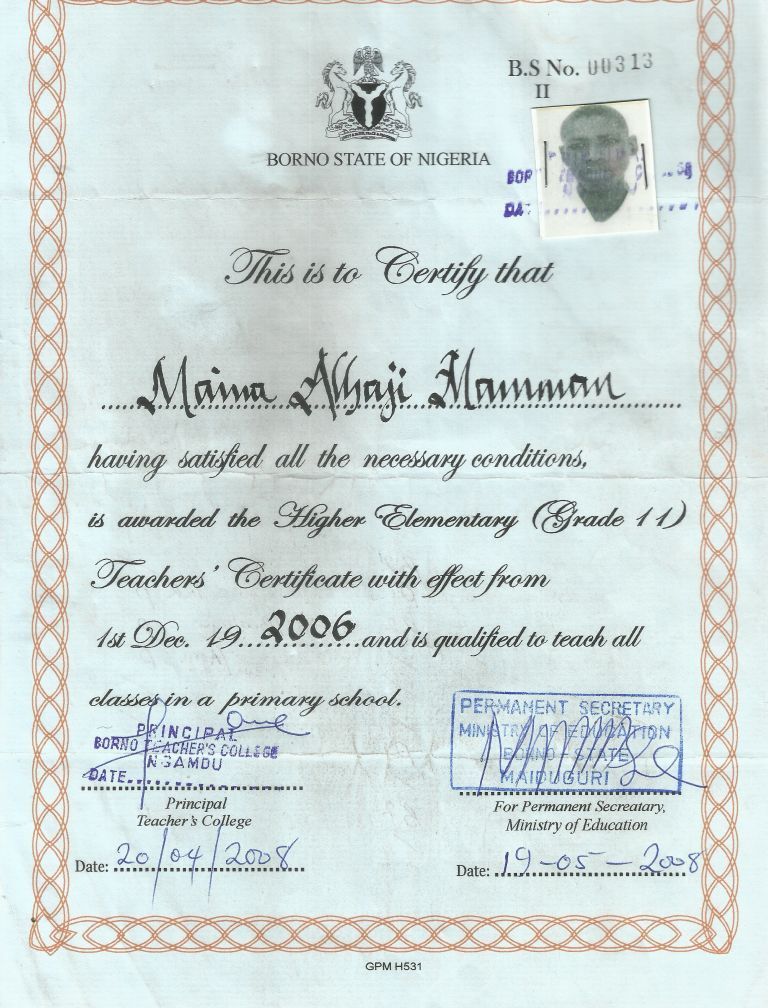 B.S No. 00313
II
BORNO STATE OF NIGERIA
This is to Certify that
Maina Alhaji Mamman
having satisfied all the necessary conditions,
is awarded the Higher Elementary (Grade 11)
Teachers' Certificate with effect from
1st Dec. 19 2006 and is qualified to teach all
classes in a primary school.
PRINCIPAL
BORNO TEACHER'S COLLEGE
NGAMDU
DATE
PERMANENT SECRETARY
MINISTRY OF EDUCATION
BORNO STATE
MAIDUGURI
Principal
Teacher's College
For Permanent Secreatary,
Ministry of Education
Date: 20/04/2008
Date: 19-05-2008
GPM H531